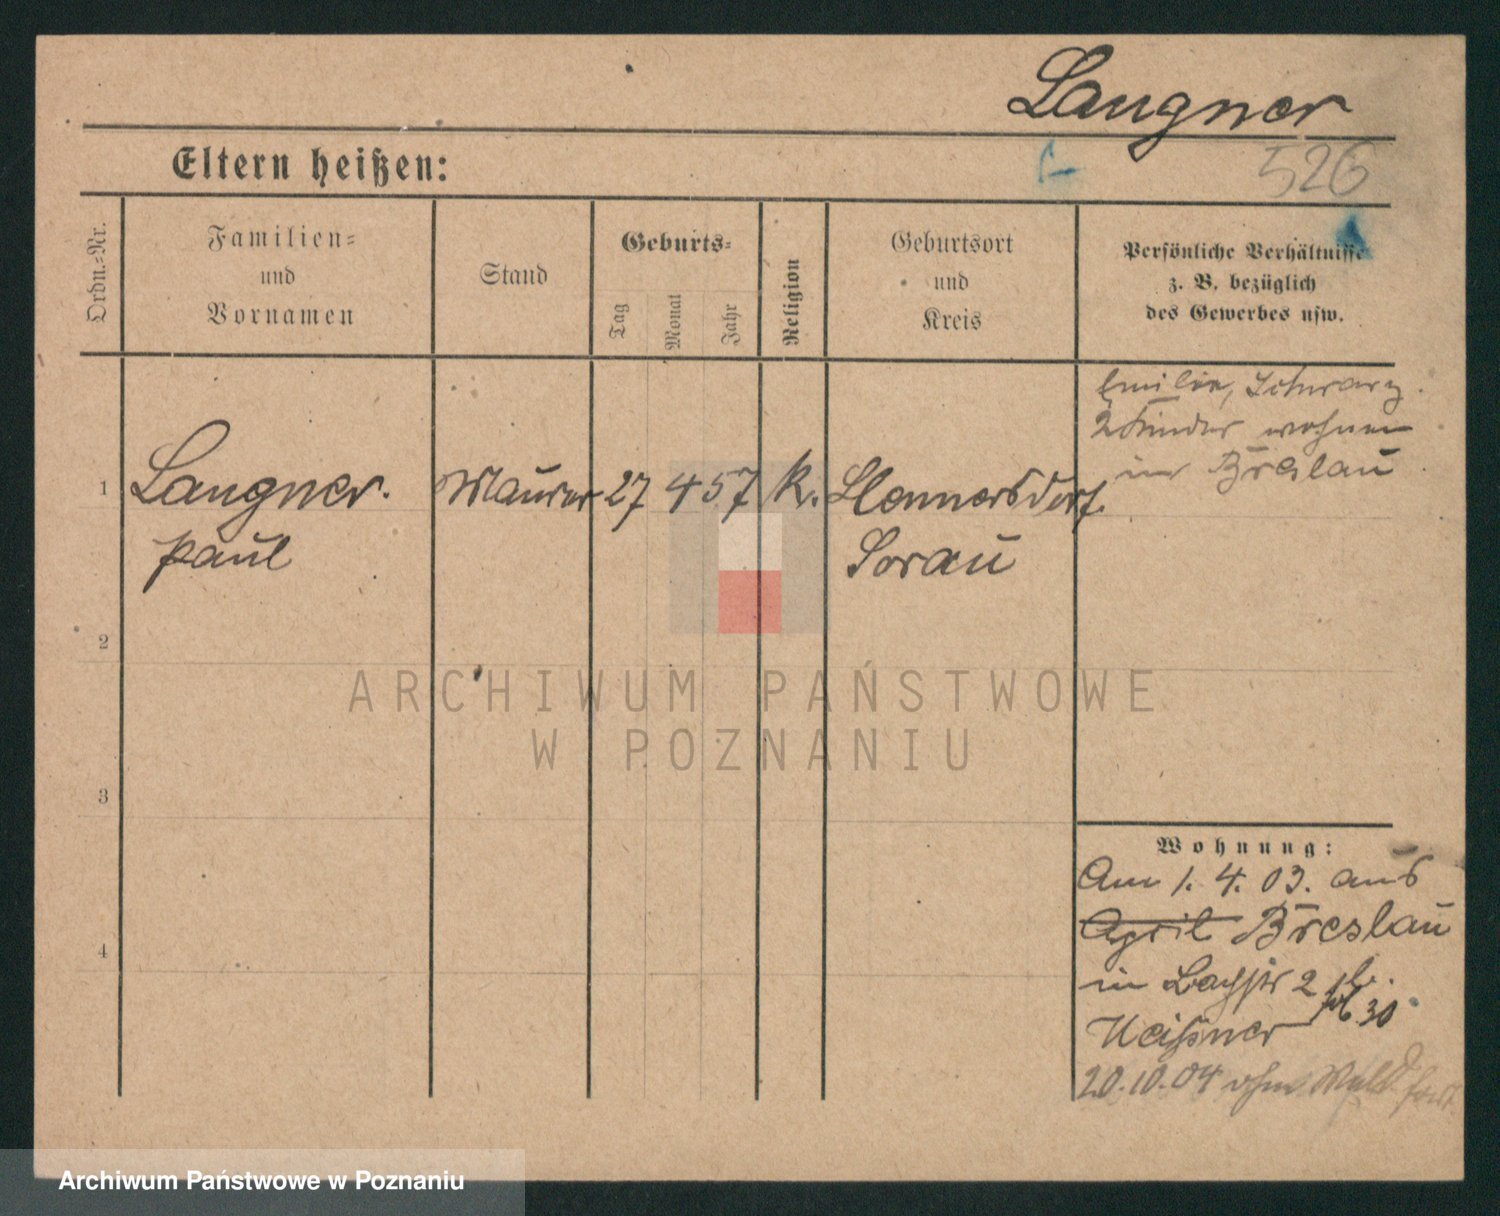 Langner
526
Eltern heißen:
Ordn.-Nr.
Familien-
und
Vornamen
Stand
Geburts-
Tag
Monat
Jahr
Religion
Geburtsort
und
Kreis
Persönliche Verhältnisse
z. B. bezüglich
des Gewerbes usw.
Emilie, Schwarz.
2 Kinder wohnen
in Breslau
1 Langner. Maurer 27 4 57 K. Hennersdorf.
Paul Sorau
2
3
4
ARCHIWUM PAŃSTWOWE
W POZNANIU
Wohnung:
Am 1. 4. 03. aus
April Breslau
in Bachstr 2 b.
Meißner 30
20.10.04 ohne fort
Archiwum Państwowe w Poznaniu